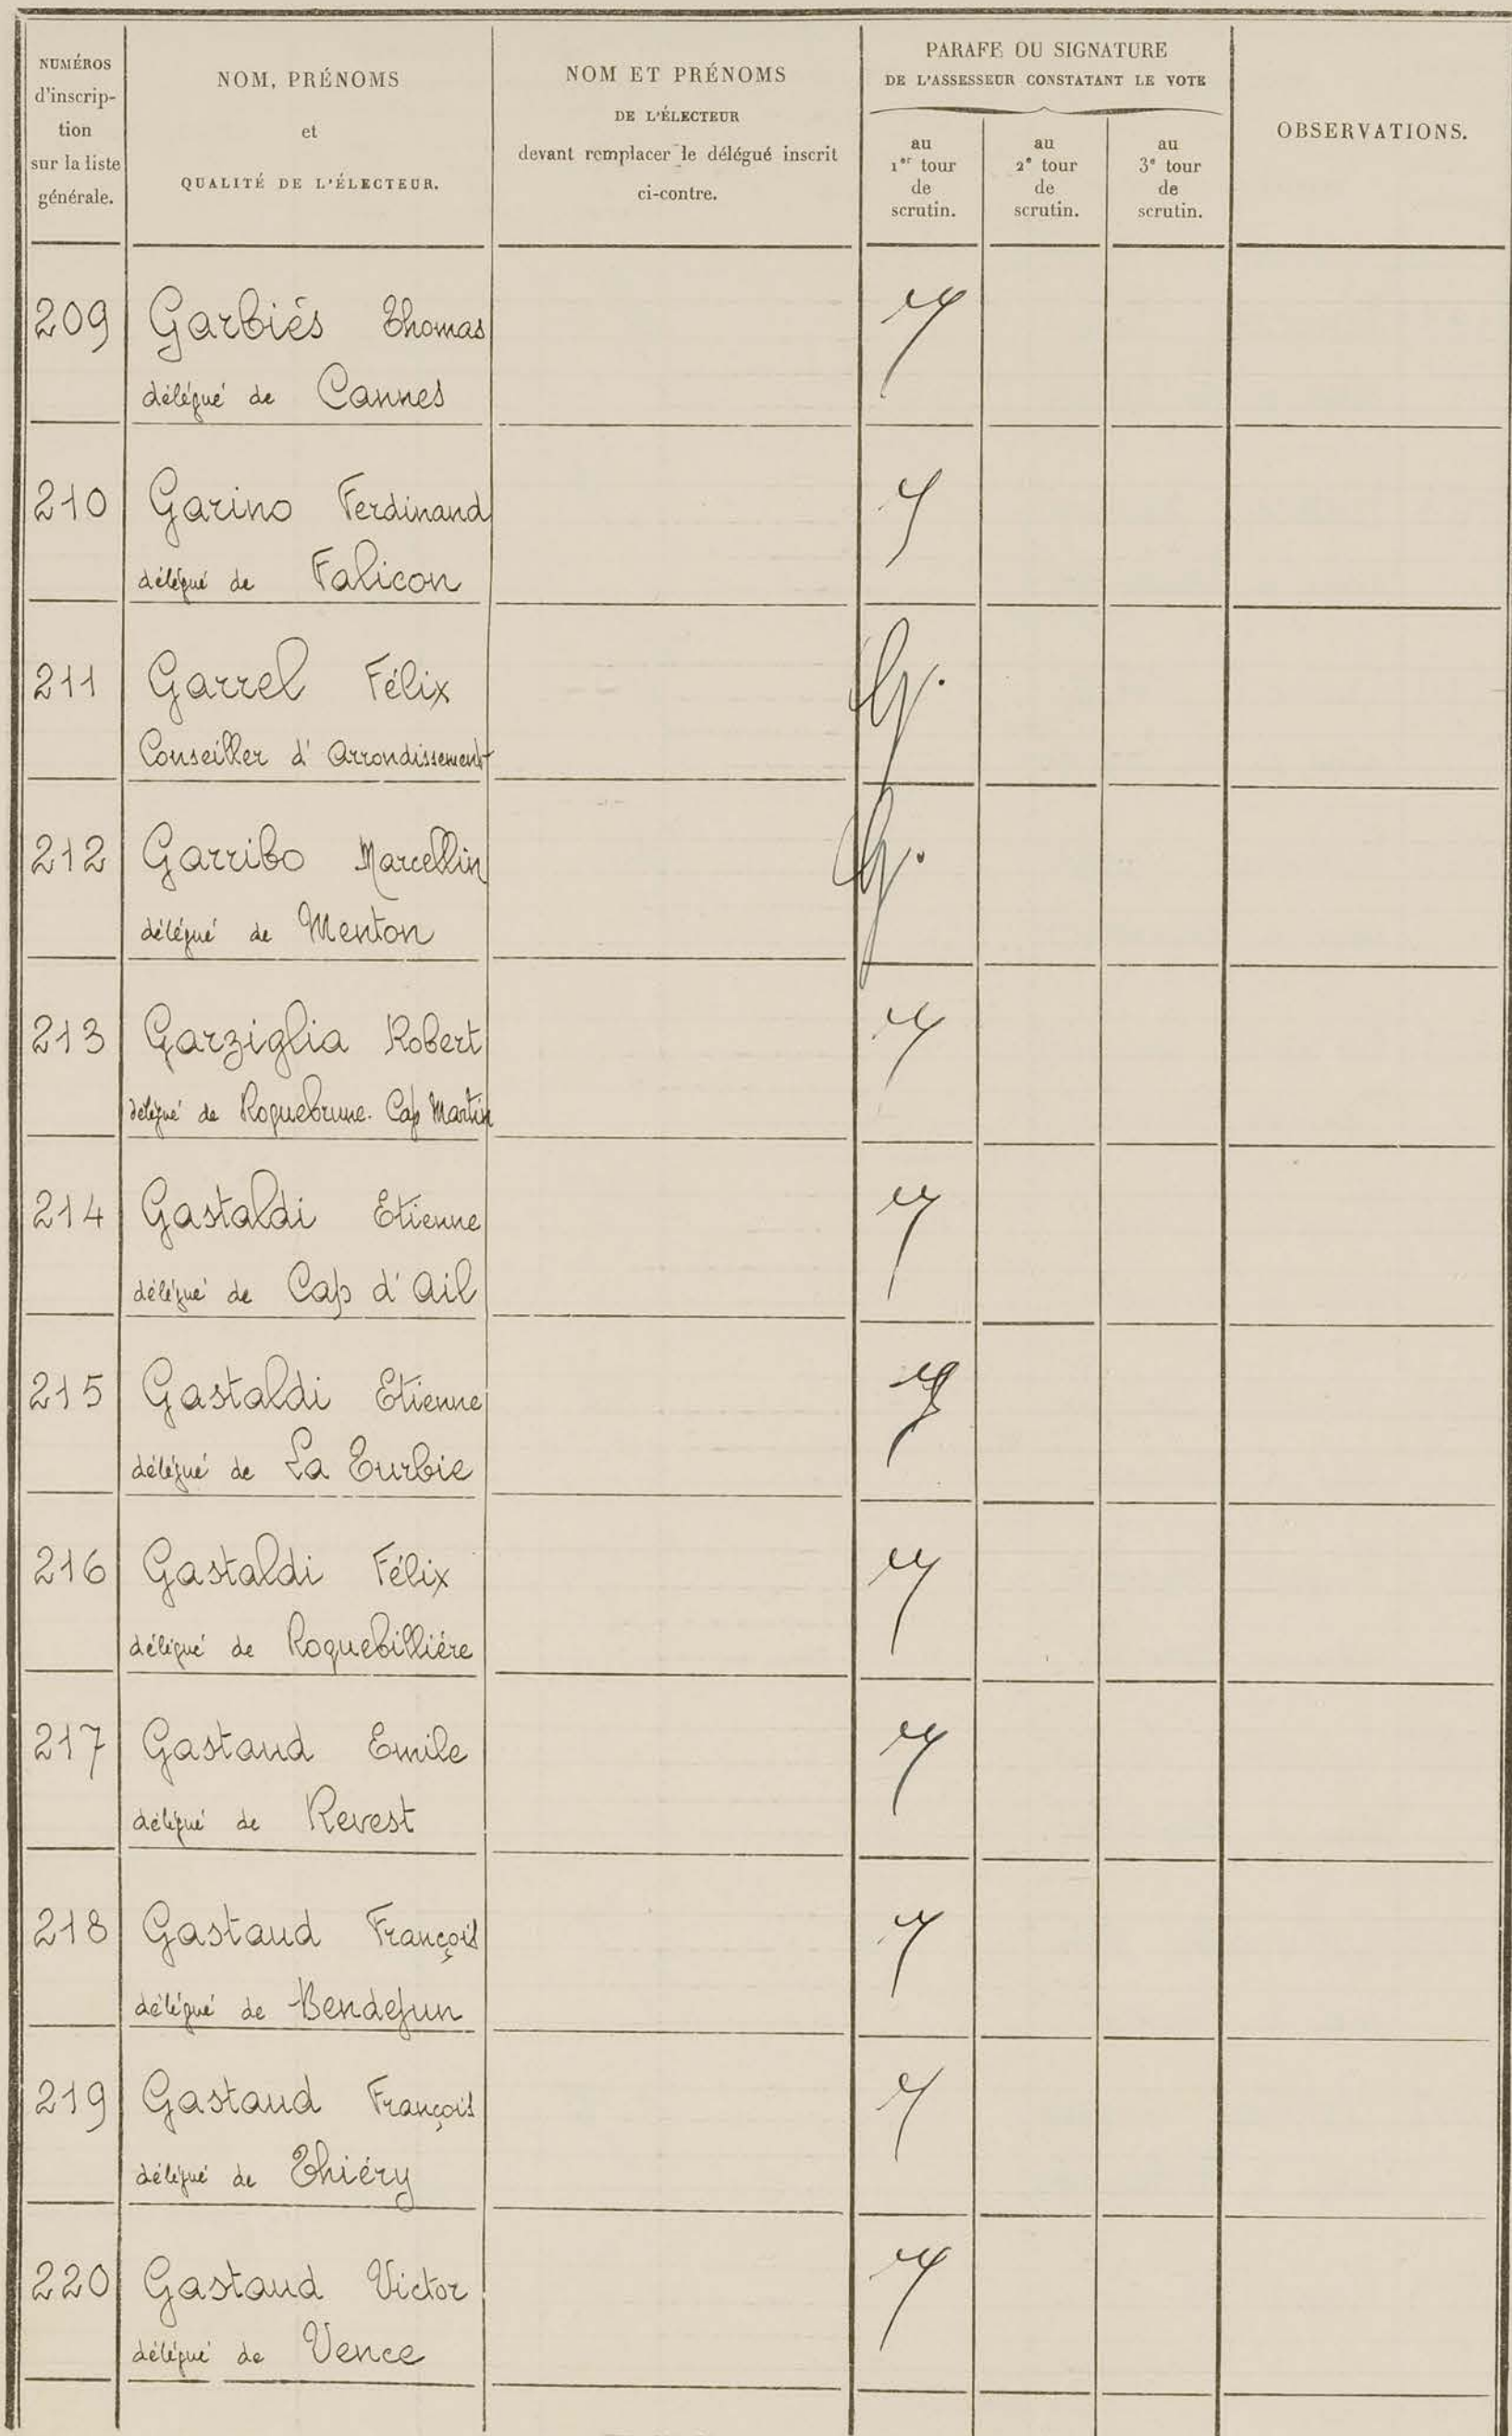 NUMÉROS
d'inscrip-
tion
sur la liste
générale.
NOM, PRÉNOMS
et
QUALITÉ DE L'ÉLECTEUR.
NOM ET PRÉNOMS
DE L'ÉLECTEUR
devant remplacer le délégué inscrit
ci-contre.
PARAFE OU SIGNATURE
DE L'ASSESSEUR CONSTATANT LE VOTE
au
1er tour
de
scrutin.
au
2e tour
de
scrutin.
au
3e tour
de
scrutin.
OBSERVATIONS.
209 Garbiés Thomas
délégué de Cannes
210 Garino Ferdinand
délégué de Falicon
211 Garrel Félix
Conseiller d'Arrondissement
212 Garribo Marcellin
délégué de Menton
213 Garziglia Robert
délégué de Roquebrune. Cap Martin
214 Gastaldi Etienne
délégué de Cap d'Ail
215 Gastaldi Etienne
délégué de La Turbie
216 Gastaldi Félix
délégué de Roquebilliére
217 Gastaud Emile
délégué de Revest
218 Gastaud François
délégué de Bendejun
219 Gastaud François
délégué de Thiéry
220 Gastaud Victor
délégué de Vence